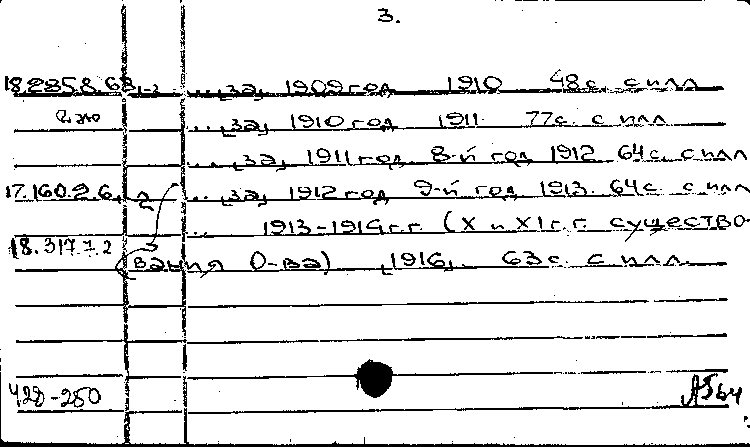 3.
18.285.8.68,1-3 ... [за] 1909 год 1910 48с. с илл
... [за] 1910 год 1911 77с. с илл
... [за] 1911 год. 8-й год 1912 64с. с илл
17.160.2.6, 2 ... [за] 1912 год 9-й год 1913. 64с с илл
... 1913-1914 г.г. (X и XI г.г. существо-
18.317.7.2
вания О-ва) [1916]. 63с. с илл.
428-250